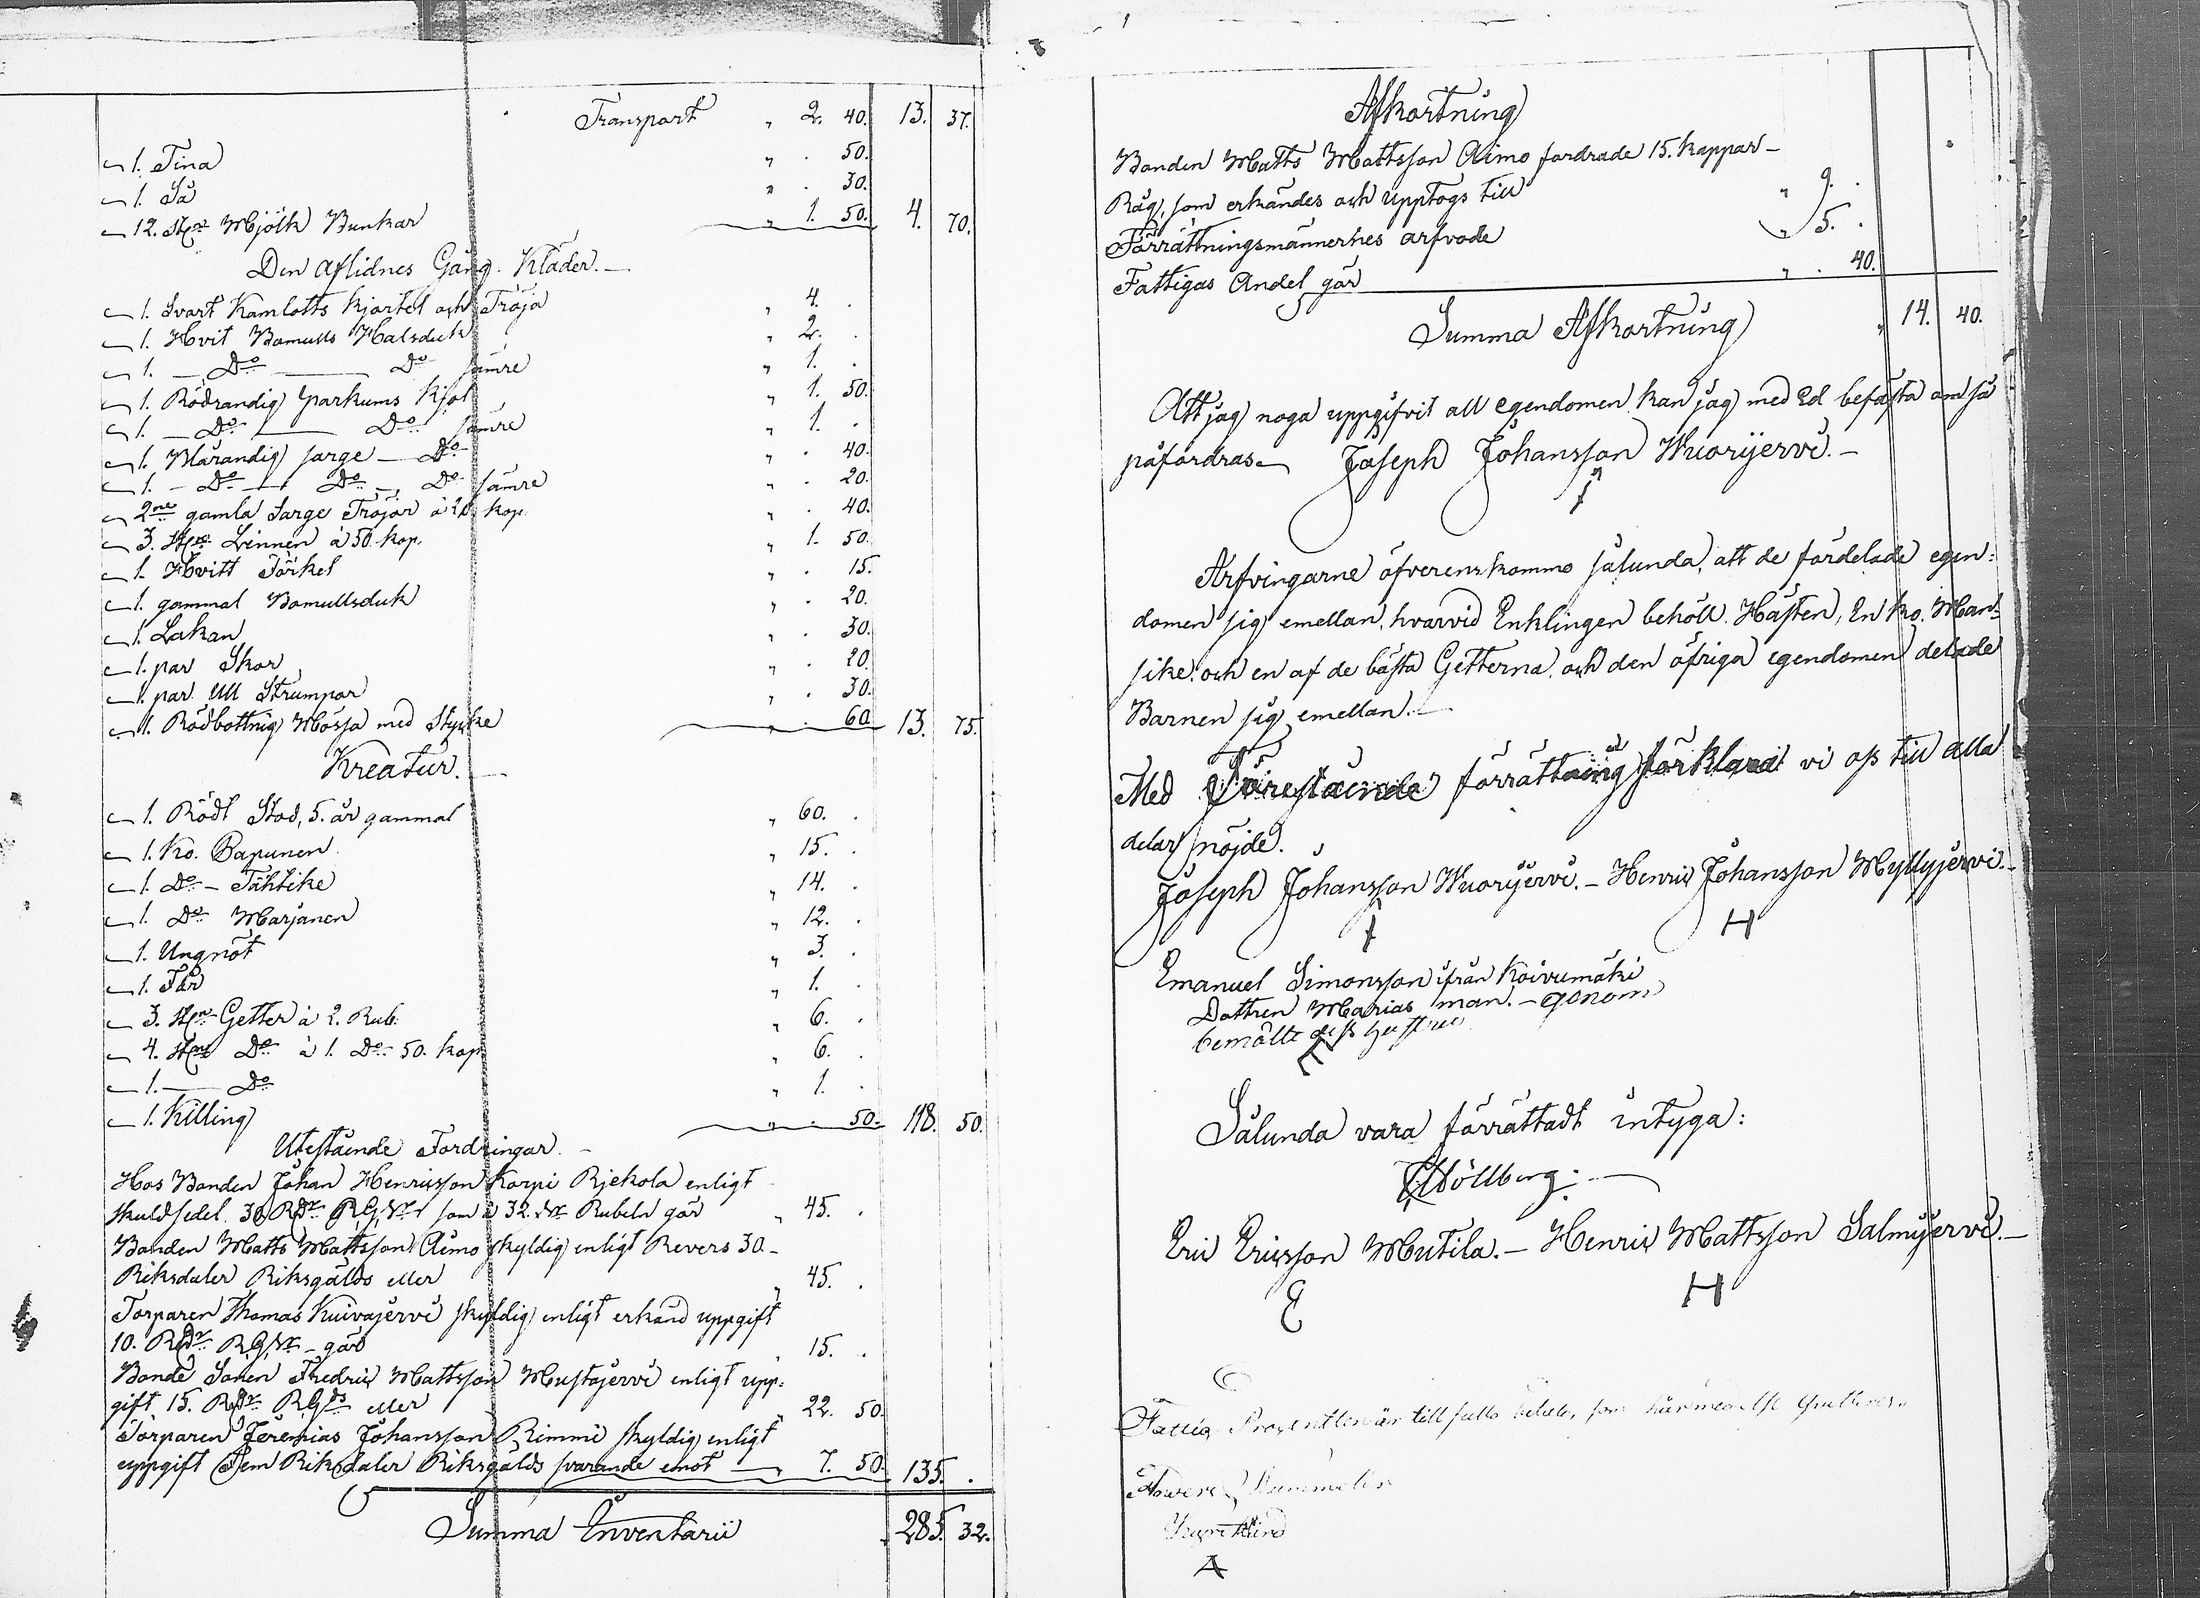 Transport " 2. 40. 13. 37.
1. Tina " . 50.
1. Så " . 30.
12. St Mjölk Bunkar " 1. 50. 4. 70.
Den aflidnes Gång. Kläder.
1. Svart Kamlotts Kjortel och Tröja " 4. .
1. Hvit Bomulls Halsduk " 2. .
1. — Do — Do sämre " 1. .
1. Rödrandig parkums Kjol " 1. 50.
1. — Do — Do sämre " 1. .
1. Blårandig sarge — Do " . 40.
1. — Do — Do — Do sämre " . 20.
2ne gamla Sarge Tröjor à 20 kop. " . 40.
3. St Linnen à 50 kop. " 1. 50.
1. Hvitt Förkel " . 15.
1. gammal Bomullsduk " . 20.
1. Lakan " . 30.
1. par Skor " . 20.
1. par Ull Strumpor " . 30.
1. Rödbottnig Mössa med Stycke " . 60. 13. 75.
Kreatur.
1. Rödt Stod, 5. år gammal " 60. .
1. Ko. Papunen " 15. .
1. Do — Tähtike " 14. .
1. Do Marjanen " 12. .
1. Ungnöt " 3. .
1. Får " 1. .
3. St Getter à 2. Rub. " 6. .
4. St Do à 1. Do 50. kop " 6. .
1. — Do " 1. .
1. Killing " . 50. 118. 50.
Utestående Fordringar. —
Hos Bonden Johan Henricsson Karpi Rjekola enligt
skuldsedel. 30 RDr RG som à 32. Rubeln gör " 45. .
Bonden Matts Mattsson Aimo skyldig enligt Revers 30 —
Riksdaler Riksgälds eller " 45. .
Torparen Thomas Kuivajervi skyldig enligt erkänd uppgift
10. RDr RG — gör " 15. .
Bonde Sonen Fredric Mattsson Mustajervi enligt upp=
gift 15. RDr RGds eller " 22. 50.
Torparen Jeremias Johansson Rimmi skyldig enligt
uppgift Fem Riksdaler Riksgälds svarande emot — " 7. 50. 135. .
Summa Inventarii " 285. 32.
Afkortning
Bonden Matts Mattsson Aimo fordrade 15. kappar —
Råg, som erkändes och upptogs till " 9. .
Förrättningsmännernes arfvode " 5. .
Fattigas Andel gör " . 40.
Summa Afkortning " 14. 40.
Att jag noga uppgifvit all egendomen kan jag med Ed befästa om så
påfordras — Joseph Johansson Wuorijervi. —
Arfvingarne öfverenskommo sålunda, att de fördelade egen=
domen sig emellan, hvarvid Enklingen behöll Hästen, En ko. Man=
sike. och en af de bästa Getterna och den öfriga egendomen delade
Barnen sig emellan. —
Med Förestående förrättning förklara vi oss till alla
delar nöjde.
Joseph Johansson Wuorijervi. — Henric Johansson Myllyjervi. —
H
Emanuel Simonsson ifrån Koivumäki
Dottren Marias man. — genom
bemälte dess hustru
Sålunda vara förrättadt intyga:
Höllberg. —
Eric Ericsson Mutila. — Henric Mattsson Salmijervi. —
E H
Fattig Procenten är till fullo betalt, som härmedelst qvitteras.
A